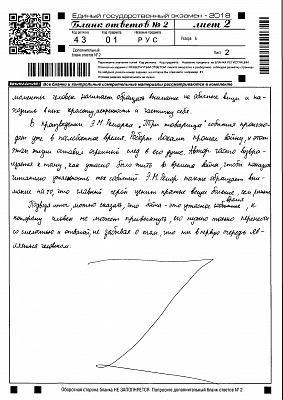 Единый государственный экзамен - 2018
Бланк ответов № 2 лист 2
Код региона Код предмета Название предмета
43 01 РУС Резерв - 5
Дополнительный бланк ответов № 2
Лист 2
ВНИМАНИЕ! Все бланки и контрольные измерительные материалы рассматриваются в комплекте
моменты человек начинает обращать внимание на обычные вещи и на-
ходить в них красоту, нужность и частичку себя.
В произведении Э.М. Ремарка "Три товарища" события происхо-
дят уже в послевоенное время. Роберт Локамп прошел войну, и этот
этап жизни оставил огромный след в его душе. Автор часто возвра-
щается к тому, как ужасно было жить в времена войны, чтобы показать
читателю
ужасность тех событий. Э.М. Ремарк также обращает вни-
мание на то, что главный герой ценит простые вещи больше, чем раньше.
Подводя итог, можно сказать, что война - это ужасное время, к
которому человек не может привыкнуть, его нужно только перенести
со смелостью и отвагой, не забывая о том, что ты в первую очередь яв-
ляешься человеком.
Оборотная сторона бланка НЕ ЗАПОЛНЯЕТСЯ. Попросите дополнительный бланк ответов № 2